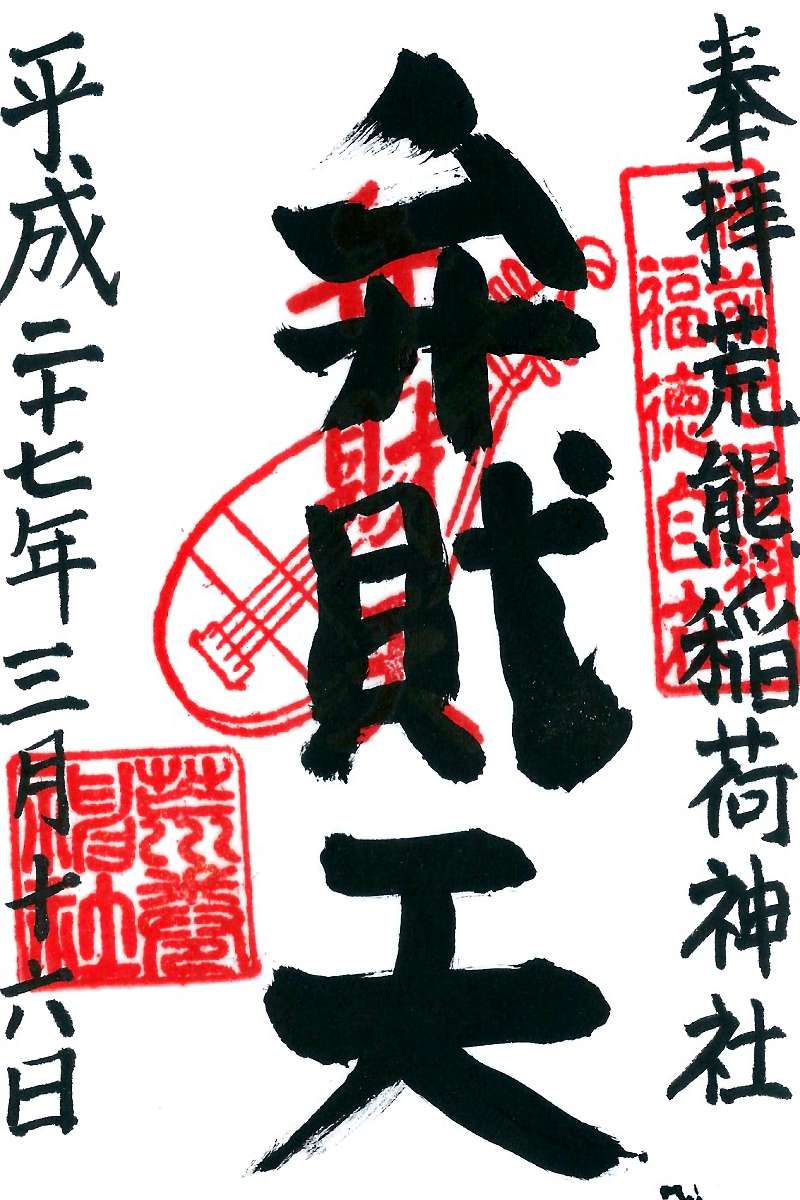 奉拝 荒熊稲荷神社
福徳自在
弁財天
弁財天
平成二十七年三月十六日